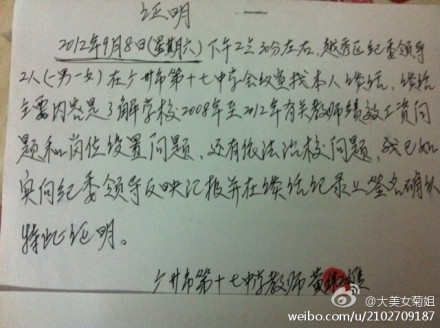 证明
2012年9月8日(星期六)下午2点30分左右,越秀区纪委领导
2人(一男一女)在广州市第十七中学会议室找本人谈话,谈话
主要内容是了解学校2008年至2012年有关教师绩效工资问
题和岗位设置问题,还有依法治校问题,我已如
实向纪委领导反映汇报并在谈话纪录上签名确认
特此证明。
广州市第十七中学教师黄
@大美女菊姐
weibo.com/u/2102709187